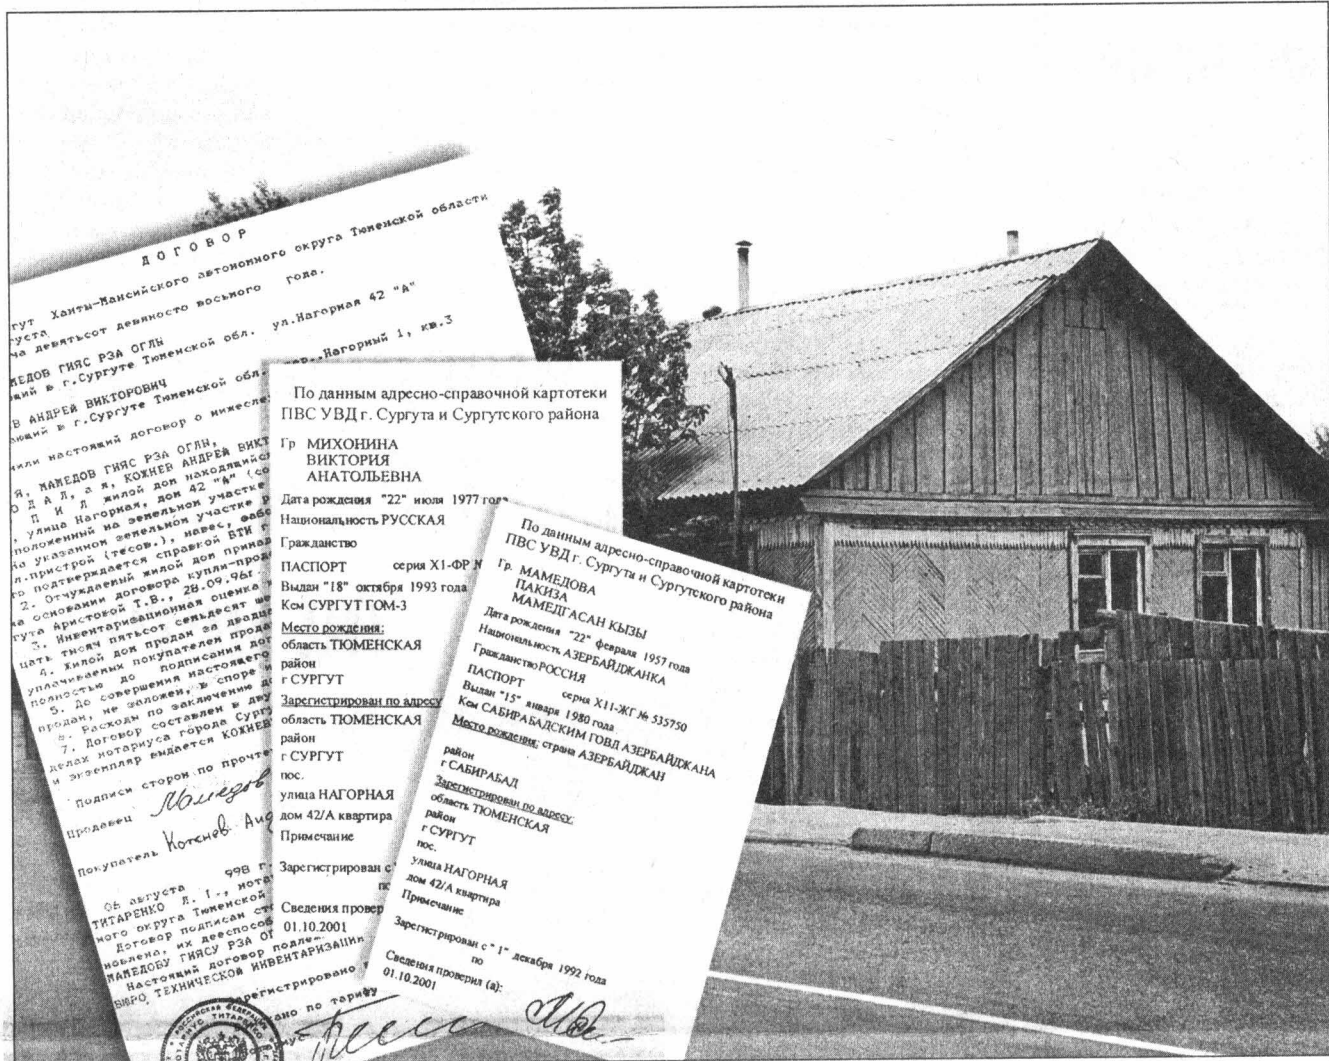 Д О Г О В О Р
гут Ханты-Мансийского автономного округа Тюменской области
густа
ча девятьсот девяносто восьмого года.
МЕДОВ ГИЯС РЗА ОГЛЫ
ющий в г.Сургуте Тюменской обл. ул.Нагорная 42 "А"
В АНДРЕЙ ВИКТОРОВИЧ
ающий в г.Сургуте Тюменской обл. пер..Нагорный 1, кв.3
чили настоящий договор о нижесле
Я, МАМЕДОВ ГИЯС РЗА ОГЛЫ,
О Д А Л, а я, КОЖНЕВ АНДРЕЙ ВИКТ
П И Л жилой дом находящийс
, улица Нагорная, дом 42 "А" (со
положенный на земельном участке
На указанном земельном участке р
л.пристрой (тесов.), навес, забо
го подтверждается справкой БТИ г
2. Отчуждаемый жилой дом принад
на основании договора купли-прода
гута Аристовой Т.В., 28.09.96г.
3. Инвентаризационная оценка
цать тысяч пятьсот семьдесят ше
4. Жилой дом продан за двадца
уплачиваемых покупателем прода
полностью до подписания дог
5. До совершения настоящего
продан, не заложен, в споре и
6. Расходы по заключению до
7. Договор составлен в дву
делах нотариуса города Сург
и экземпляр выдается КОЖНЕВ
Подписи сторон по прочте
Продавец Мамедов
Покупатель Кожнев Анд
06 августа 998 г.
ТИТАРЕНКО Л. Г., нота
ного округа Тюменской
Договор подписан сто
новлена, их дееспособ
МАМЕДОВУ ГИЯСУ РЗА ОГ
Настоящий договор подле
БЮРО ТЕХНИЧЕСКОЙ ИНВЕНТАРИЗАЦИИ
Зарегистрировано
ано по тарифу
РОССИЙСКАЯ ФЕДЕРАЦИЯ
НОТАРИУС ТИТАРЕНКО
По данным адресно-справочной картотеки
ПВС УВД г. Сургута и Сургутского района
Гр МИХОНИНА
ВИКТОРИЯ
АНАТОЛЬЕВНА
Дата рождения "22" июля 1977 года
Национальность РУССКАЯ
Гражданство
ПАСПОРТ серия X1-ФР №
Выдан "18" октября 1993 года
Кем СУРГУТ ГОМ-3
Место рождения:
область ТЮМЕНСКАЯ
район
г СУРГУТ
Зарегистрирован по адресу
область ТЮМЕНСКАЯ
район
г СУРГУТ
пос.
улица НАГОРНАЯ
дом 42/А квартира
Примечание
Зарегистрирован с "
по
Сведения провер
01.10.2001
По данным адресно-справочной картотеки
ПВС УВД г. Сургута и Сургутского района
Гр. МАМЕДОВА
ПАКИЗА
МАМЕДГАСАН КЫЗЫ
Дата рождения "22" февраля 1957 года
Национальность АЗЕРБАЙДЖАНКА
Гражданство РОССИЯ
ПАСПОРТ серия X11-ЖГ № 535750
Выдан "15" января 1980 года
Кем САБИРАБАДСКИМ ГОВД АЗЕРБАЙДЖАНА
Место рождения: страна АЗЕРБАЙДЖАН
район
г САБИРАБАД
Зарегистрирован по адресу:
область ТЮМЕНСКАЯ
район
г СУРГУТ
пос.
улица НАГОРНАЯ
дом 42/А квартира
Примечание
Зарегистрирован с " 1" декабря 1992 года
по
Сведения проверил (а):
01.10.2001